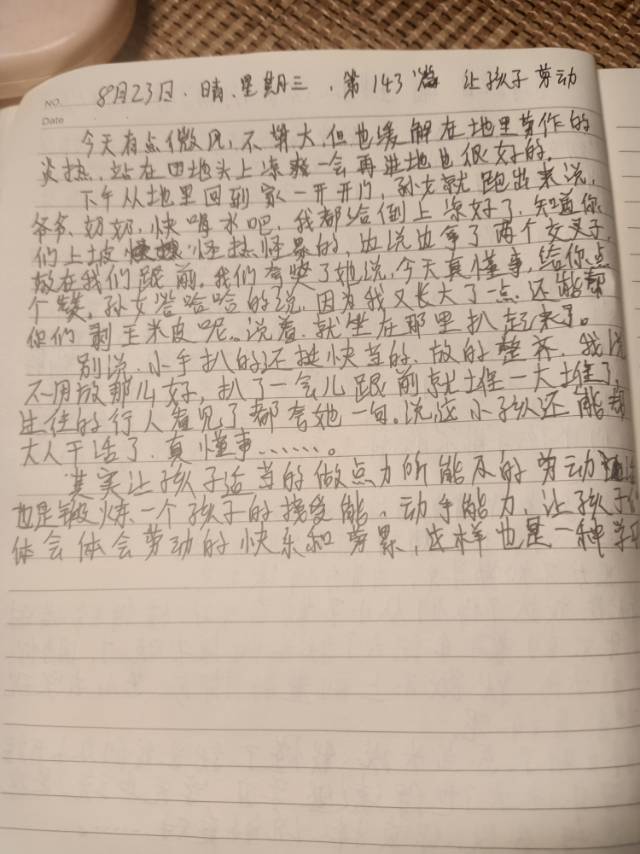 NO.
Date
8月23日.晴.星期三.第143篇 让孩子劳动
今天有点微风,不算大,但也缓解在地里劳作的
炎热.站在田地头上凉爽一会再进地也很好的.
下午从地里回到家一开开门,孙女就跑出来说,
爷爷.奶奶.快喝水吧,我都给倒上凉好了,知道你
们上坡怪热怪累的,边说边拿了两个交叉子,
放在我们跟前.我们夸奖了她说,今天真懂事,给你点
个赞.孙女笑哈哈的说.因为我又长大了一点.还能帮
你们剥玉米皮呢。说着.就坐在那里扒起来了。
别说.小手扒的还挺快当的.放的整齐.我说
不用放那么好,扒了一会儿跟前就堆一大堆了,
过往的行人看见了都夸她一句.说这小孩还能帮
大人干活了.真懂事……。
其实让孩子适当的做点力所能及的劳动
也是锻炼一个孩子的接受能。动手能力,让孩子
体会体会劳动的快乐和劳累,这样也是一种学